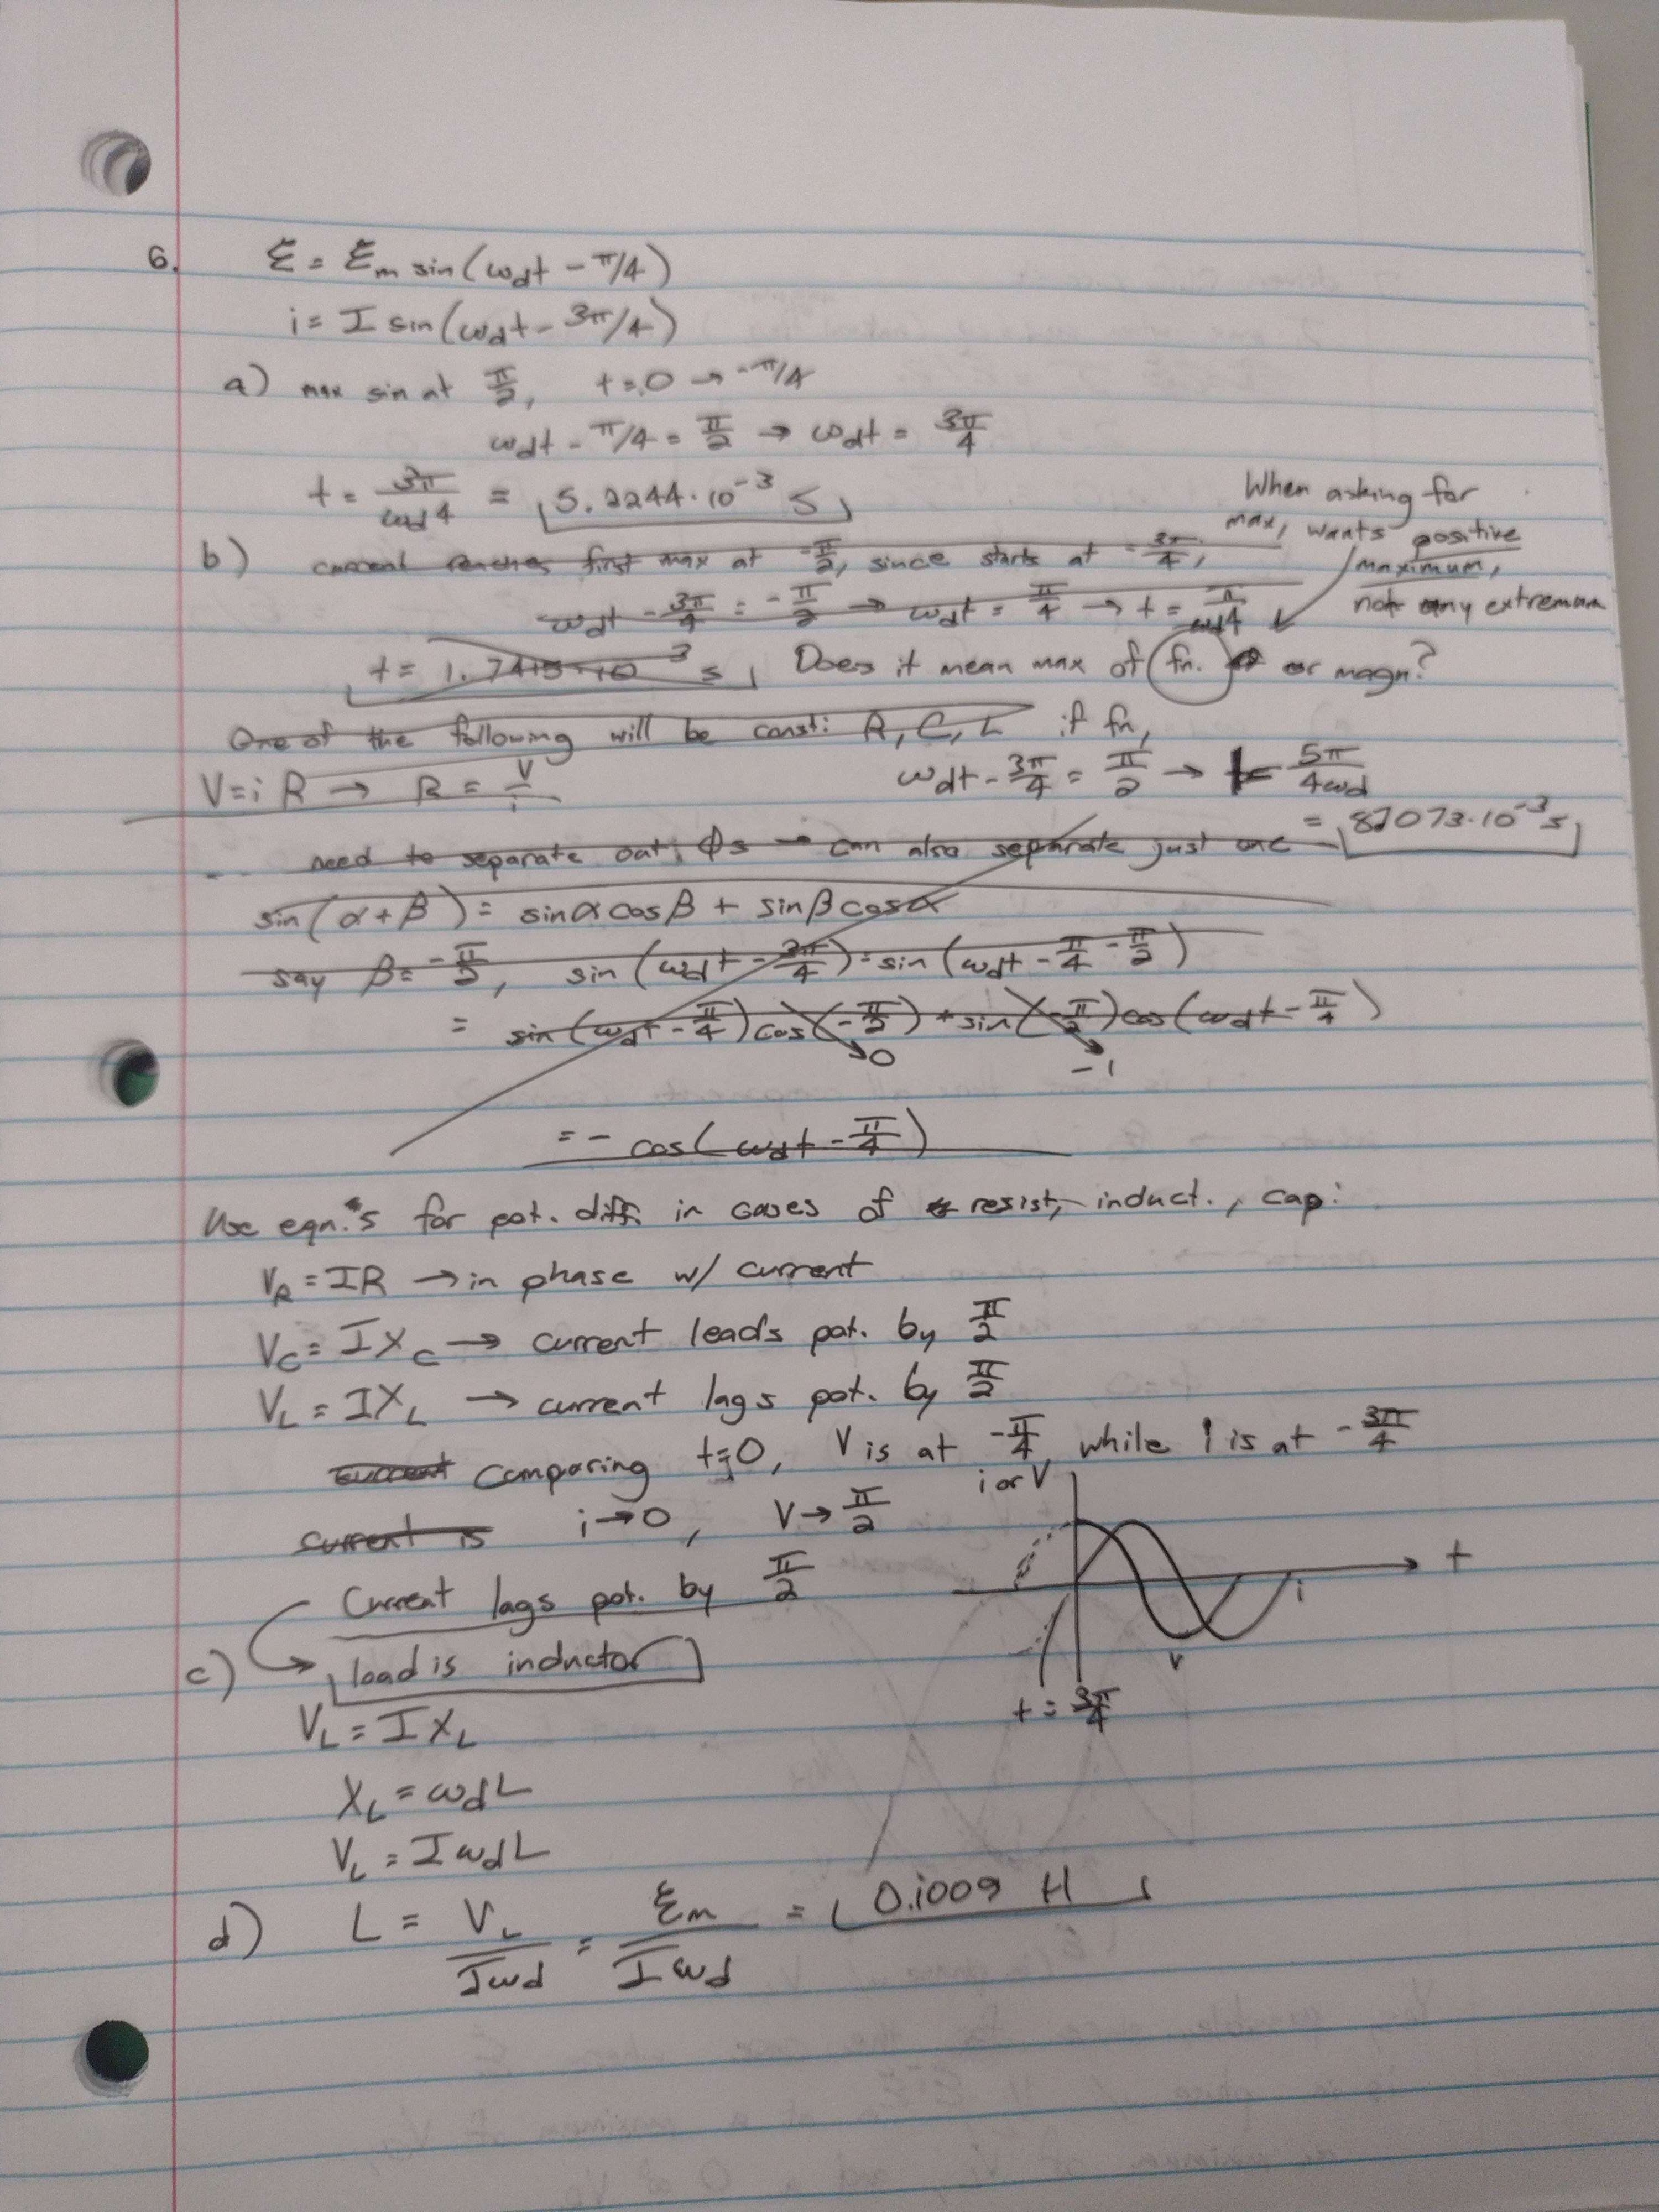 6. ℰ = ℰm sin(ωdt - π/4)
i = I sin(ωdt - 3π/4)
a) max sin at π/2, t=0 → -π/4
ωdt - π/4 = π/2 → ωdt = 3π/4
t = 3π/ωd4 = 5.2244·10^-3 s
When asking for
max, wants positive
maximum,
not any extremum
b) current reaches first max at -π/2, since starts at -3π/4,
ωdt - 3π/4 = -π/2 → ωdt = π/4 → t = π/ωd4
t = 1.7415·10^-3 s Does it mean max of fn. or magn?
One of the following will be const: R, C, L if fn,
V=iR → R = V/i
ωdt - 3π/4 = π/2 → t = 5π/4ωd
= 8.7073·10^-3 s
need to separate out ϕs → can also separate just one
sin(α+β) = sinα cosβ + sinβ cosα
say β = -π/2, sin(ωdt - 3π/4) = sin(ωdt - π/4 - π/2)
= sin(ωdt - π/4)cos(-π/2) + sin(-π/2)cos(ωdt - π/4)
0 -1
= - cos(ωdt - π/4)
Use eqn.'s for pot. diff. in cases of resist, induct., cap:
VR = IR → in phase w/ current
VC = IXC → current leads pot. by π/2
VL = IXL → current lags pot. by π/2
current comparing t=0, V is at -π/4, while i is at -3π/4
current is i→0, V→π/2
i or V
t
i
V
t = 3π/4
Current lags pot. by π/2
c) load is inductor
VL = IXL
XL = ωdL
VL = IωdL
d) L = VL/Iωd = ℰm/Iωd = 0.1009 H